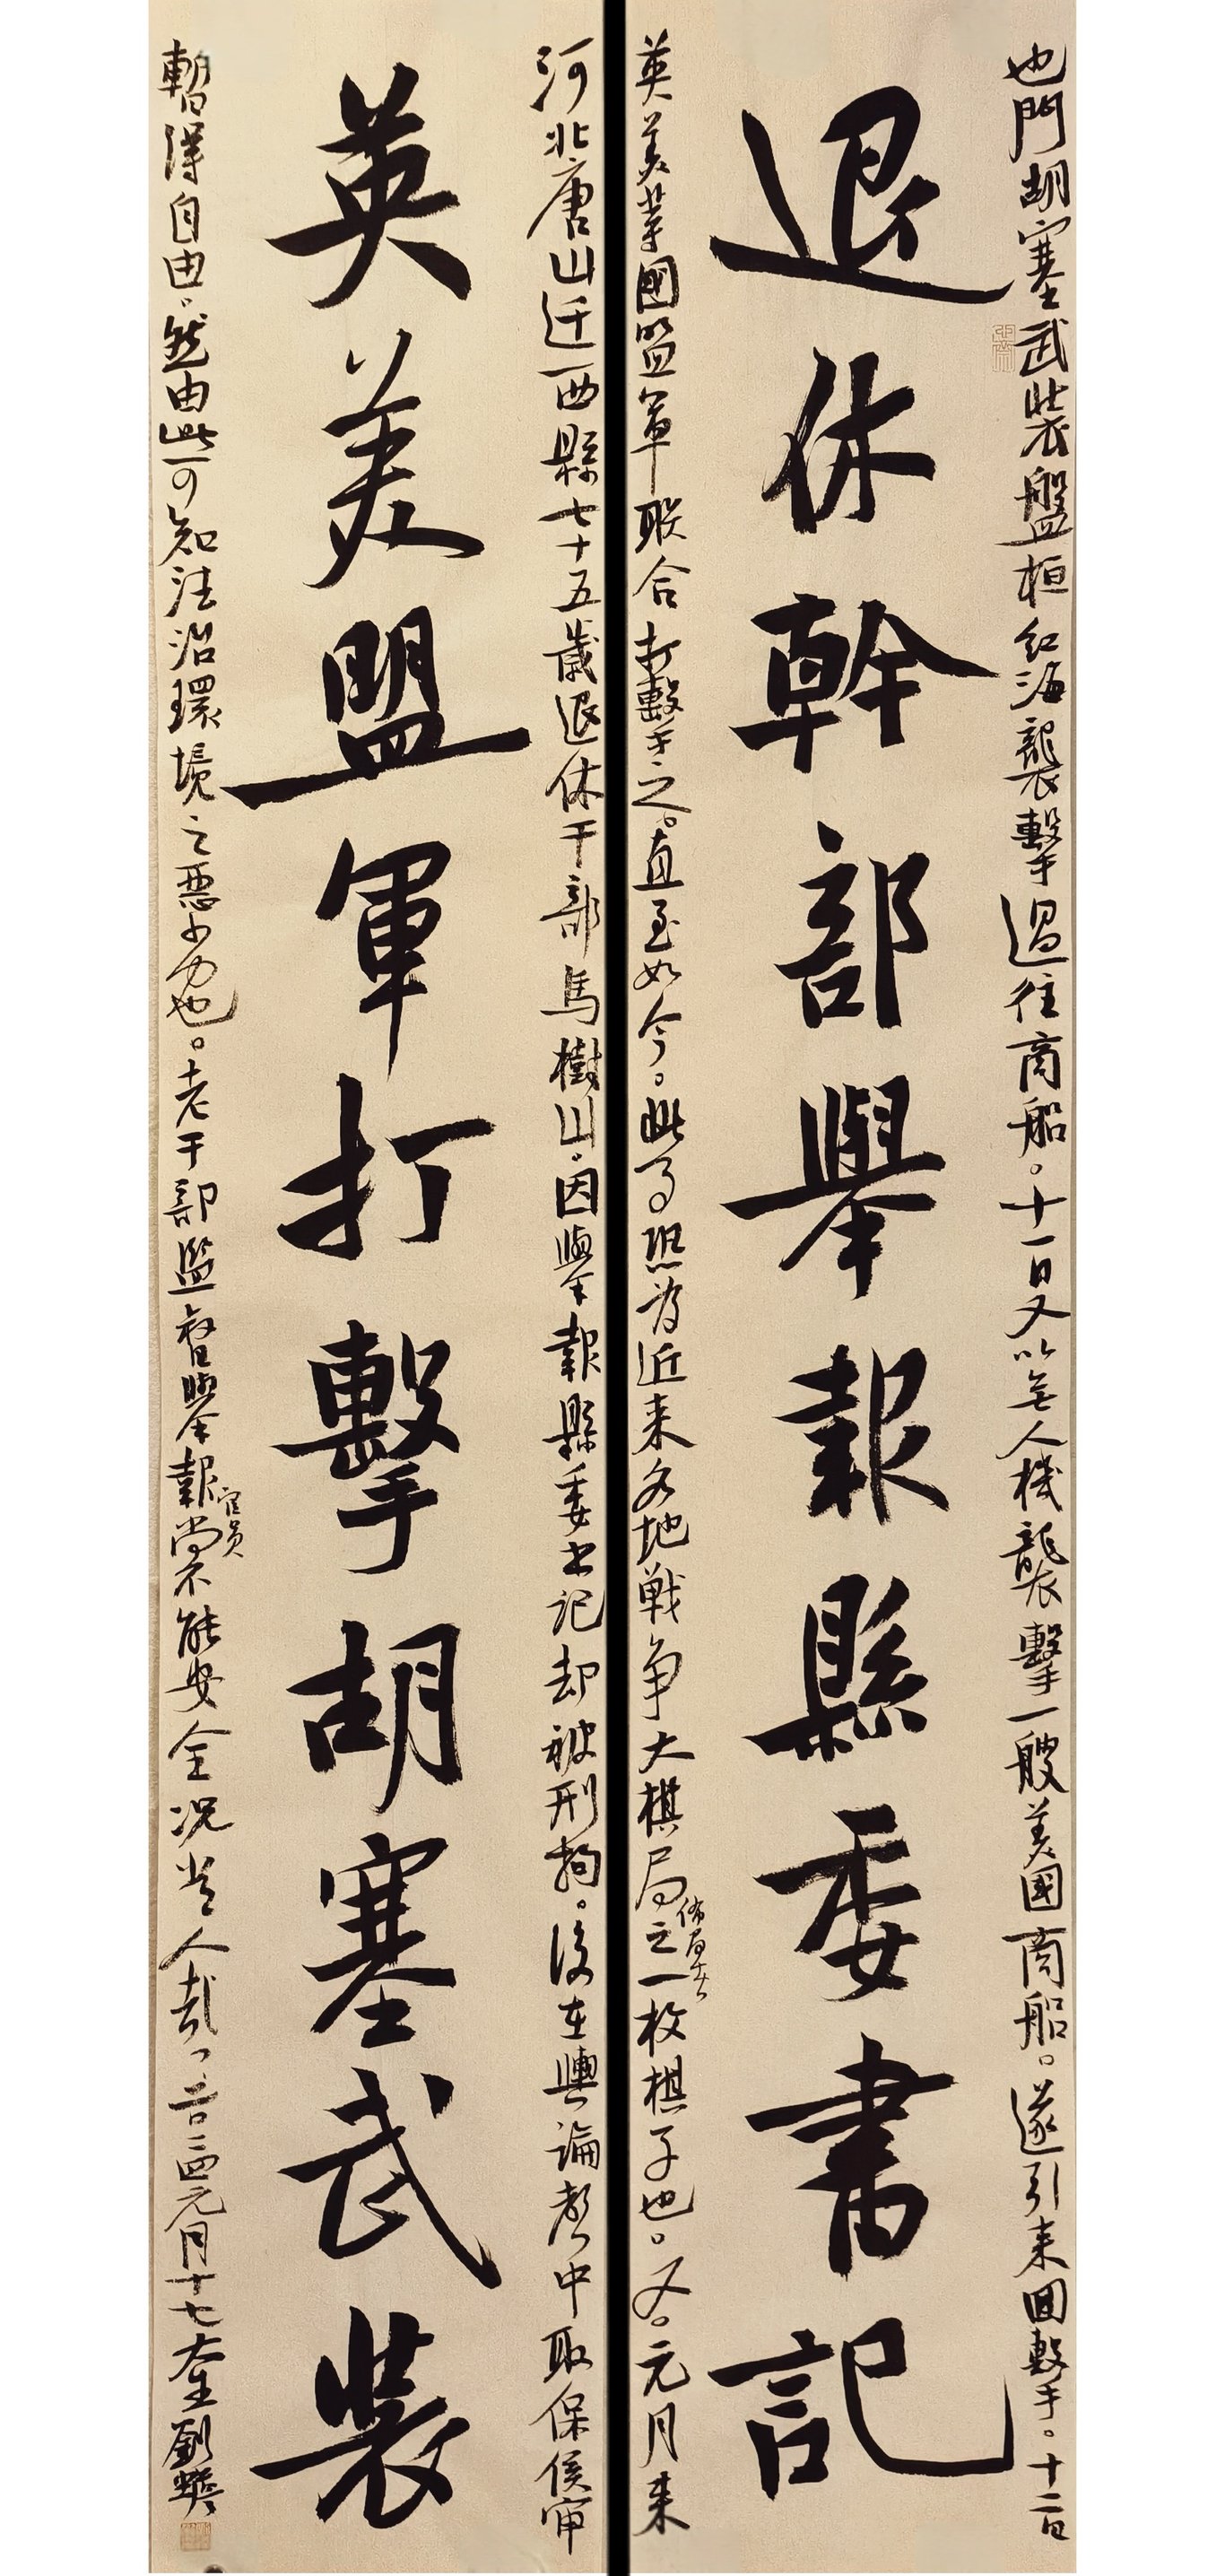 也門胡塞武裝盤桓红海襲擊過往商船。十一日又以无人機襲擊一艘美國商船。遂引来回擊。十二日
退休幹部舉報縣委書記
英美等國盟軍联合打擊之。直至如今。此乃恐为近来各地戦争大棋局之一枚棋子也。又。元月来
佈局
河北唐山迁西縣七十五歲退休干部馬樹山。因舉報縣委书记却被刑拘。後在輿論聲中取保侯审
英美盟軍打擊胡塞武裝
暫得自由。然由此可知法治環境之惡劣也。老干部監督舉報尚不能安全况常人哉。二〇二四元月十七
官员